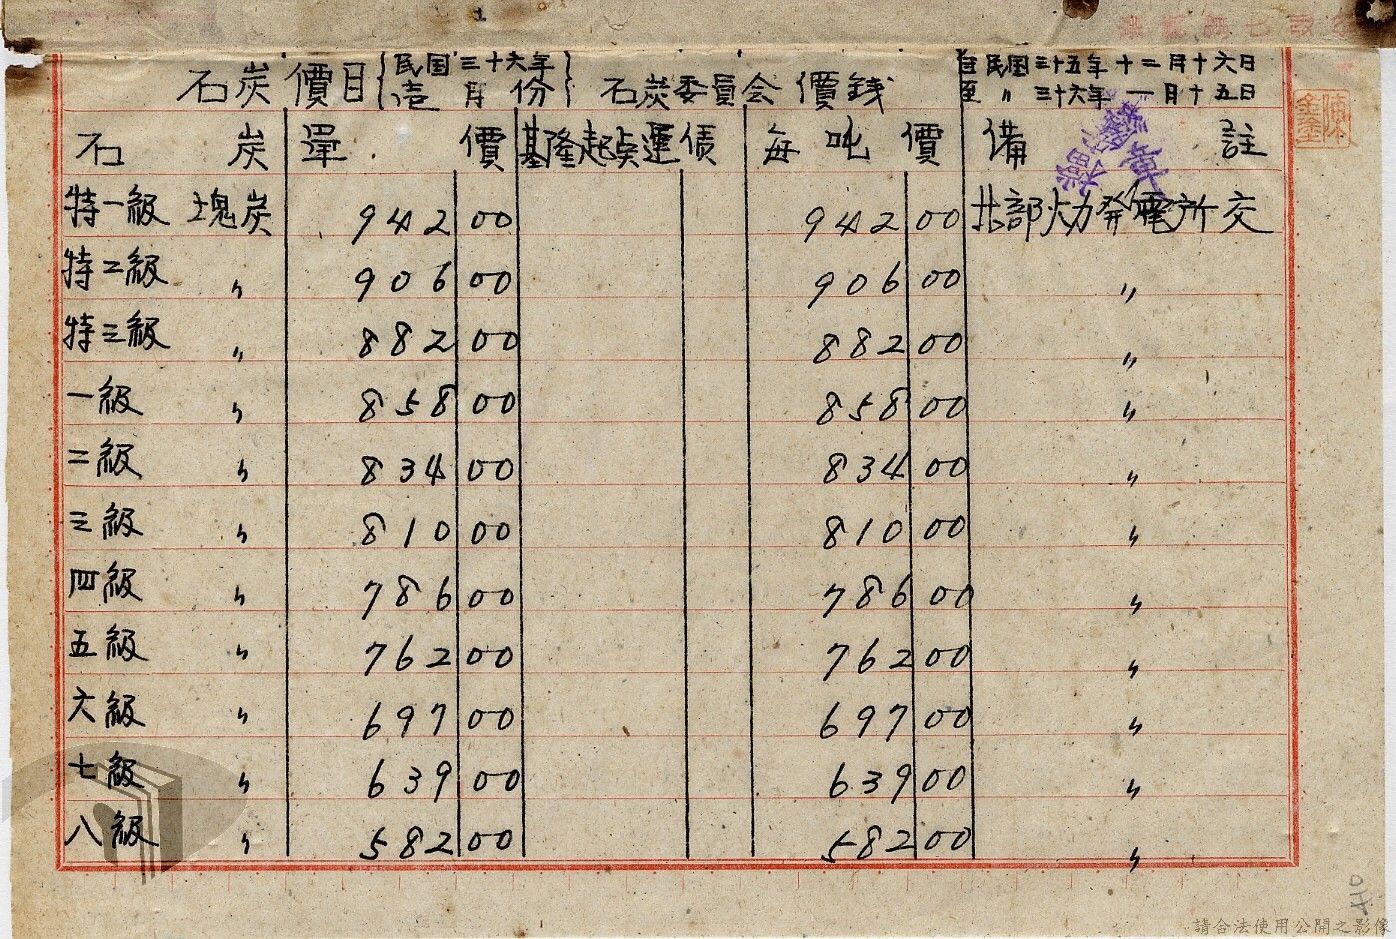 石炭價目 民国三十六年 石炭委員会價錢 自民国三十五年十二月十六日
造 月份 至〃三十六年一月十五日
石炭 單價 基隆起点運賃 每吨價 備註
特一級 塊炭 942 00 942 00 北部火力發電所交
特二級 〃 906 00 906 00 〃
特三級 〃 882 00 882 00 〃
一級 〃 858 00 858 00 〃
二級 〃 834 00 834 00 〃
三級 〃 810 00 810 00 〃
四級 〃 786 00 786 00 〃
五級 〃 762 00 762 00 〃
六級 〃 697 00 697 00 〃
七級 〃 639 00 639 00 〃
八級 〃 582 00 582 00 〃
請合法使用公開之影像